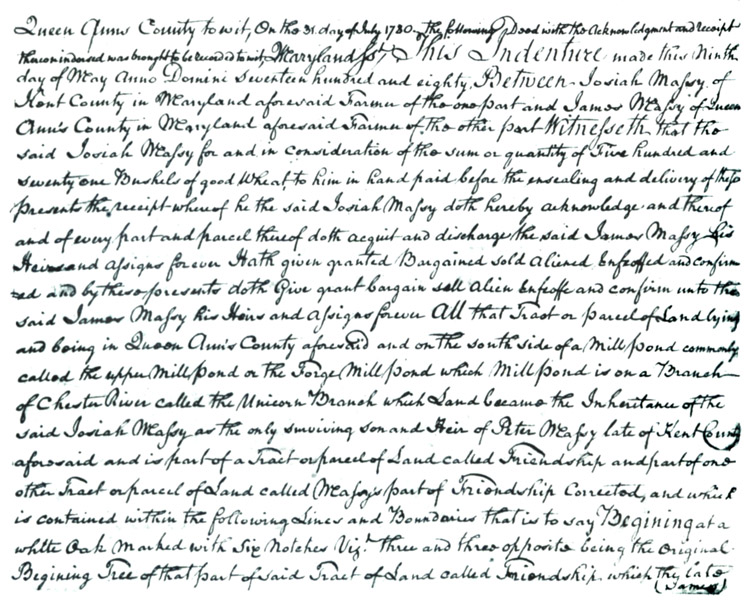 Queen Anns County to wit, On the 31 day of July 1780. The following Deed with the Acknowledgment and receipt
thereon indorsed was brought to be recorded to wit, Maryland Sst, This Indenture made this Ninth
day of May Anno Domini seventeen hundred and eighty, Between Josiah Massy of
Kent County in Maryland aforesaid Farmer of the one part and James Massy of Queen
Ann's County in Maryland aforesaid Farmer of the other part Witnesseth that the
said Josiah Massy for and in consideration of the sum or quantity of Five hundred and
seventy one Bushels of good Wheat to him in hand paid before the ensealing and delivery of these
presents the receipt whereof he the said Josiah Massy doth hereby acknowledge and thereof
and of every part and parcel thereof doth acquit and discharge the said James Massy his
Heirs and assigns forever Hath given granted Bargained sold Aliened Enfeoffed and confirm
ed and by these presents doth Give grant bargain sell Alien Enfeoffe and confirm unto the
said James Massy his Heirs and Assigns forever All that Tract or parcel of Land lying
and being in Queen Ann's County aforesaid and on the south side of a Mill pond commonly
called the upper Mill pond or the Forge Mill pond which Mill pond is on a Branch
of Chester River called the Unicorn Branch which Land became the Inheritance of the
said Josiah Massy as the only surviving son and Heir of Peter Massy late of Kent County
aforesaid and is part of a Tract or parcel of Land called Friendship and part of one
other Tract or parcel of Land called Massy's part of Friendship Corrected, and which
is contained within the following Lines and Boundaries that is to say Begining at a
white Oak marked with Six Notches Vizt. three and three opposite being the Original
Begining Tree of that part of said Tract of Land called Friendship which they late
(James)